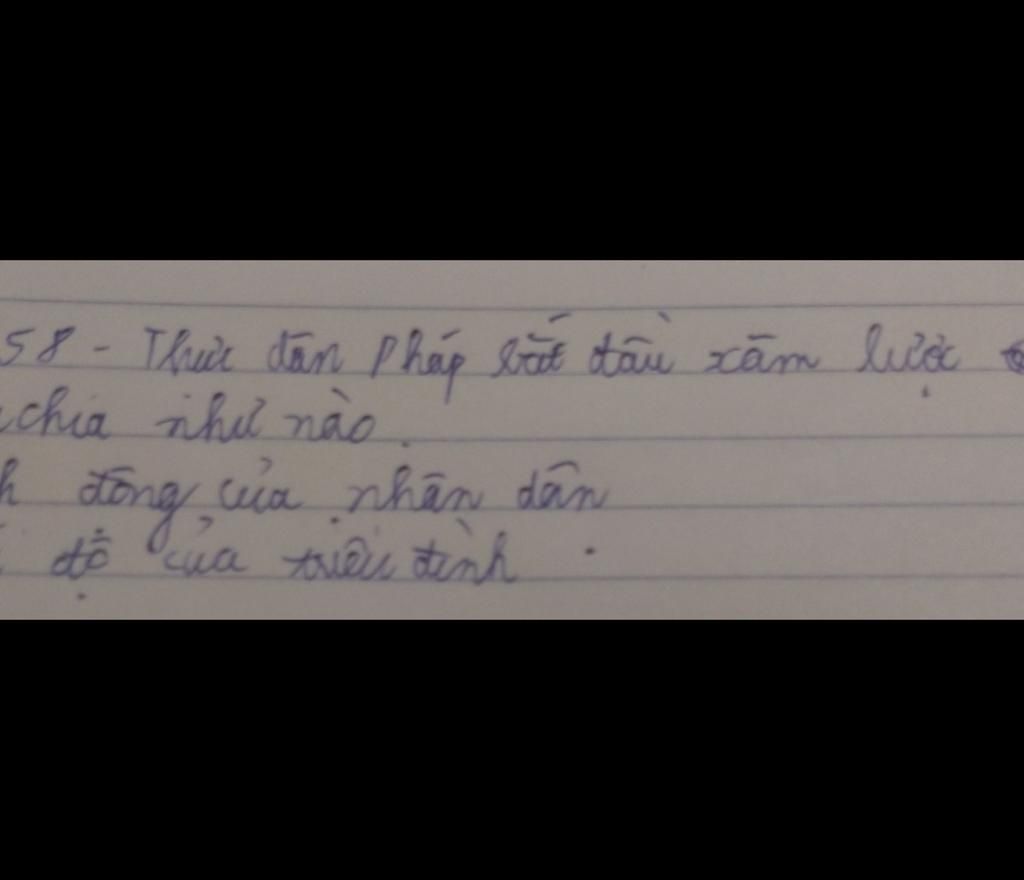 58 - Thực dân Pháp bắt đầu xâm lược
chia như nào.
động của nhân dân
độ của triều đình.